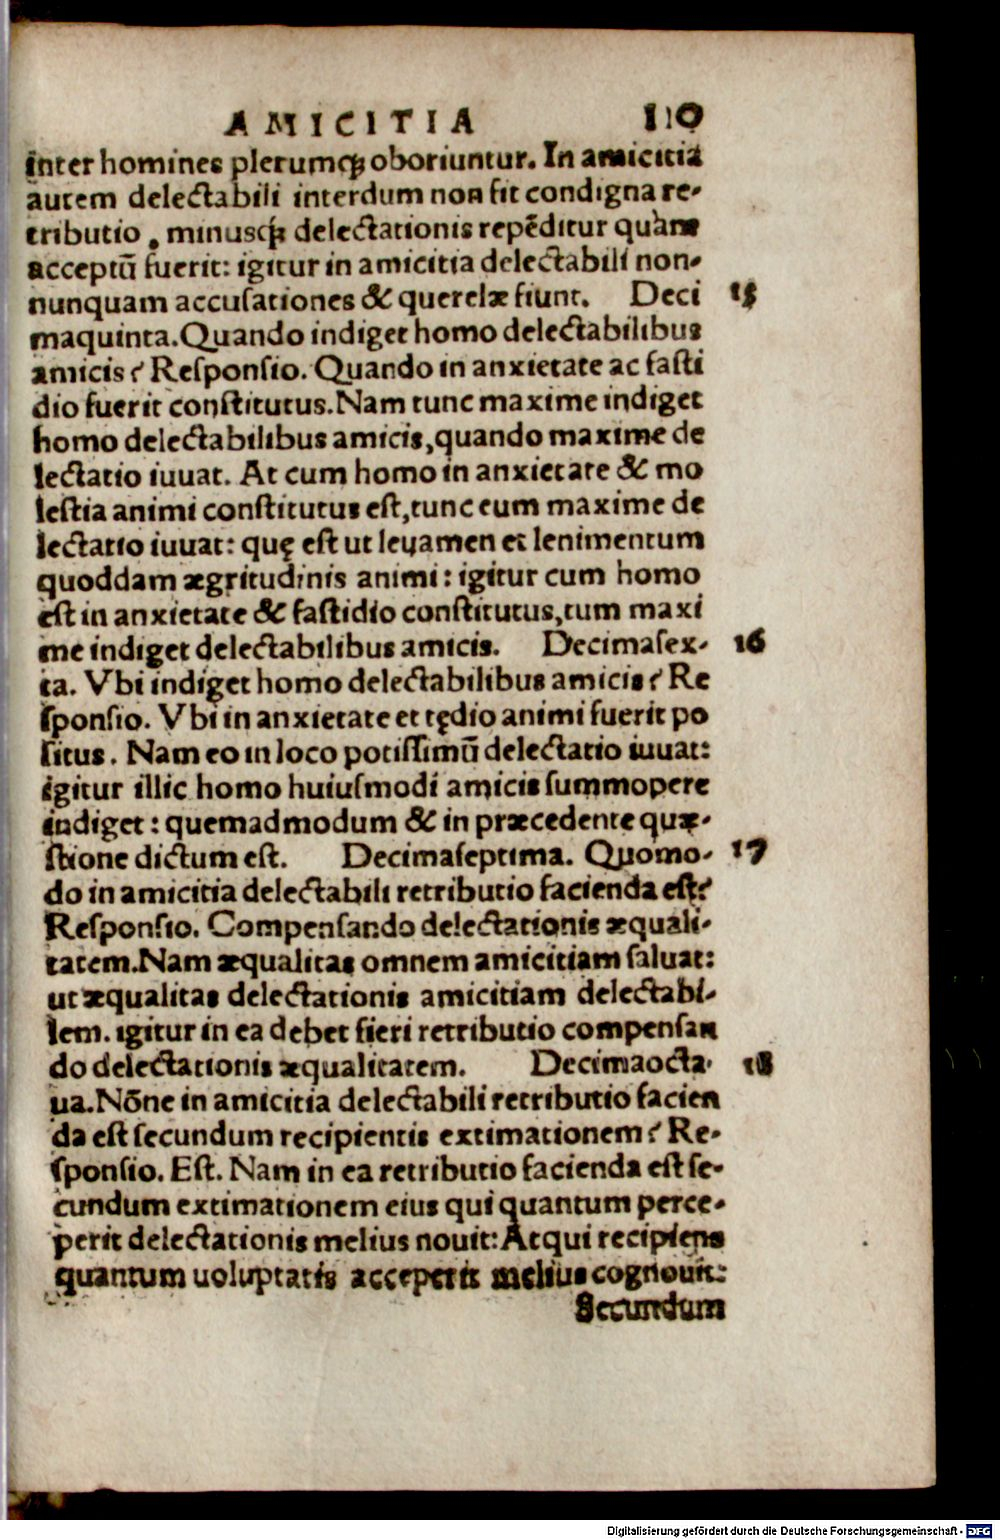 AMICITIA 110
inter homines plerumq꙼ oboriuntur. In amicitia
autem delectabili interdum non fit condigna re-
tributio, minusq꙼ delectationis repēditur quàm
acceptū fuerit: igitur in amicitia delectabili non-
nunquam accuſationes & querelæ fiunt. Deci 15
maquinta. Quando indiget homo delectabilibus
amicis? Reſponſio. Quando in anxietate ac faſti
dio fuerit conſtitutus. Nam tunc maxime indiget
homo delectabilibus amicis, quando maxime de
lectatio iuuat. At cum homo in anxietate & mo
leſtia animi conſtitutus eſt, tunc eum maxime de
lectatio iuuat: quę eſt ut leuamen et lenimentum
quoddam ægritudinis animi: igitur cum homo
eſt in anxietate & faſtidio conſtitutus, tum maxi
me indiget delectabilibus amicis. Decimaſex- 16
ta. Vbi indiget homo delectabilibus amicis? Re
ſponſio. Vbi in anxietate et tędio animi fuerit po
ſitus. Nam eo in loco potiſſimū delectatio iuuat:
igitur illic homo huiuſmodi amicis ſummopere
indiget: quemadmodum & in præcedente quæ-
ſtione dictum eſt. Decimaſeptima. Quomo- 17
do in amicitia delectabili retributio facienda eſt?
Reſponſio. Compenſando delectationis æquali-
tatem. Nam æqualitas omnem amicitiam ſaluat:
ut æqualitas delectationis amicitiam delectabi-
lem. igitur in ea debet fieri retributio compenſan
do delectationis æqualitatem. Decimaocta- 18
ua. Nōne in amicitia delectabili retributio facien
da eſt ſecundum recipientis extimationem? Re-
ſponſio. Eſt. Nam in ea retributio facienda eſt ſe-
cundum extimationem eius qui quantum perce-
perit delectationis melius nouit: Atqui recipiens
quantum uoluptatis acceperit melius cognouit:
Secundum
Digitalisierung gefördert durch die Deutsche Forschungsgemeinschaft - DFG